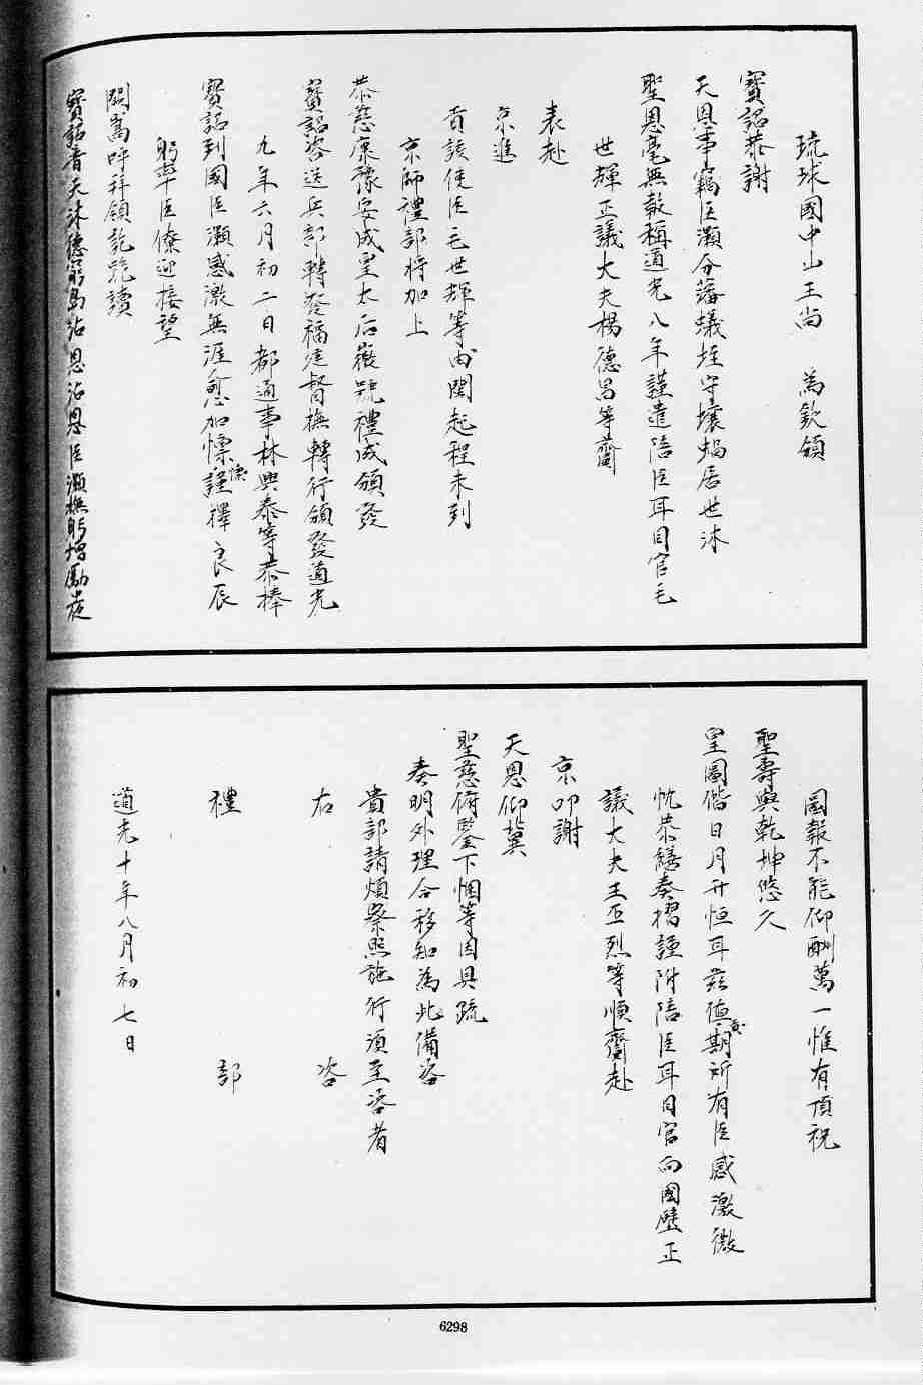 琉球國中山王尚　為欽頒
寶詔恭謝
天恩事竊臣灝分藩蟻垤守壤蝸居世沐
聖恩毫無報稱道光八年謹遣陪臣耳目官毛
世輝正議大夫楊德昌等齎
表赴
京進
貢該使臣毛世輝等由閩起程未到
京師禮部將加上
恭慈康豫安成皇太后徽號禮成頒發
寶詔咨送兵部轉發福建督撫轉行頒發道光
九年六月初二日都通事林興泰等恭捧
寶詔到國臣灝感激無涯愈加慄慄謹擇良辰
躬率臣僚迎接望
闕嵩呼拜領訖跪讀
寶詔普天沐德窮島沾恩沾恩臣灝撫躬增勵夙夜
國報不能仰酬萬一惟有頂祝
聖壽與乾坤悠久
皇圖偕日月升恒耳茲值貢期所有臣感激微
忱恭繕奏摺謹附陪臣耳目官向國璧正
議大夫王丕烈等順齎赴
京叩謝
天恩仰冀
聖慈俯鑒下悃等因具疏
奏明外理合移知為此備咨
貴部請煩察照施行須至咨者
右　咨
禮　部
道光十年八月初七日
6298